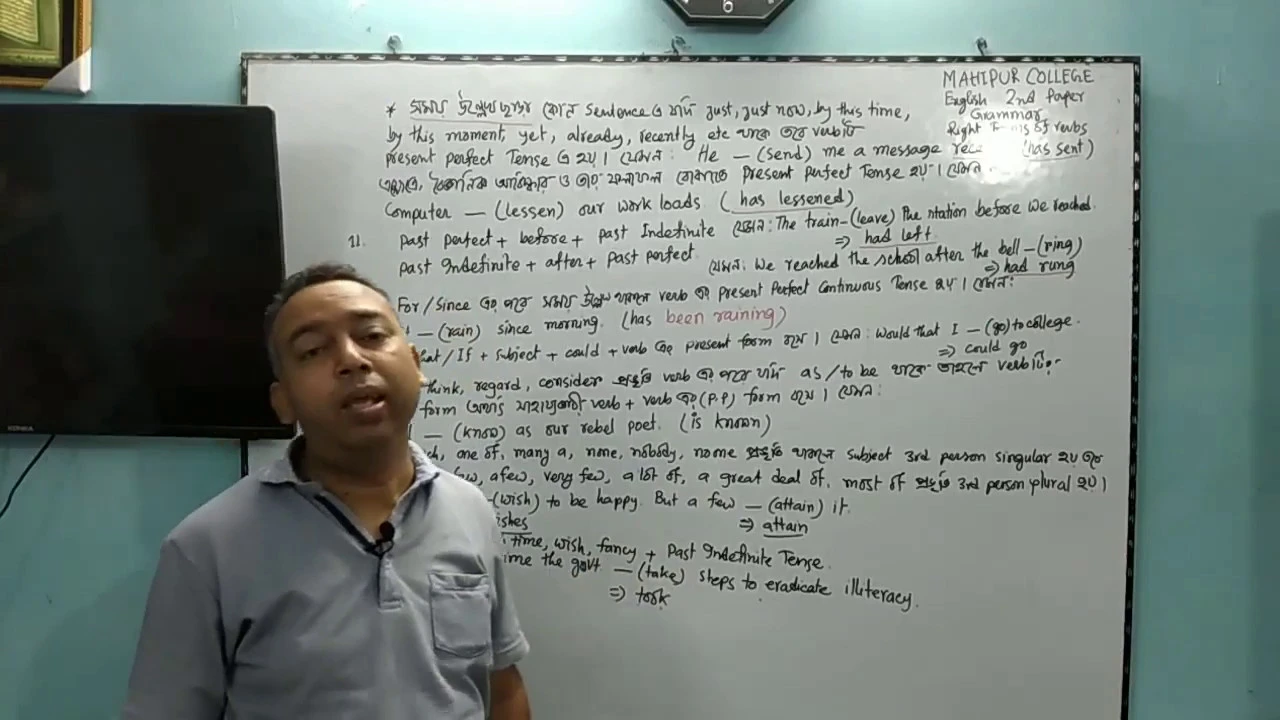 MAHIPUR COLLEGE
English 2nd Paper
Grammar
Right of verbs
* সময় উল্লেখ ছাড়া কোন Sentence এ যদি just, just now, by this time,
by this moment, yet, already, recently etc থাকে তবে verbটি
present perfect Tense এ হয়। যেমন: He — (send) me a message rec (has sent)
বৈজ্ঞানিক আবিষ্কার ও তার ফলাফল বোঝাতে Present perfect Tense হয়। যেমন:
Computer — (lessen) our work loads. (has lessened)
11. Past perfect + before + past Indefinite যেমন: The train — (leave) the station before we reached.
=> had left
Past Indefinite + after + Past perfect. যেমন: We reached the school after the bell — (ring)
=> had rung
For/since এর পরে সময় উল্লেখ থাকলে verb এর present Perfect Continuous Tense হয়। যেমন:
— (rain) since morning. (has been raining)
/ If + subject + could + verb এর present form হয়। যেমন: Would that I — (go) to college.
=> could go
think, regard, consider প্রভৃতি verb এর পরে যদি as/to be থাকে তাহলে verbটির
form অর্থাৎ সাহায্যকারী verb + verb এর (P.P) form হয়। যেমন:
— (know) as our rebel poet. (is known)
one of, many a, none, nobody, no one প্রভৃতি থাকলে subject 3rd person singular হয়
a few, very few, a lot of, a great deal of, most of প্রভৃতি 3rd person plural হয়।
(wish) to be happy. But a few — (attain) it.
=> attain
time, wish, fancy + Past Indefinite Tense.
the govt — (take) steps to eradicate illiteracy.
=> took